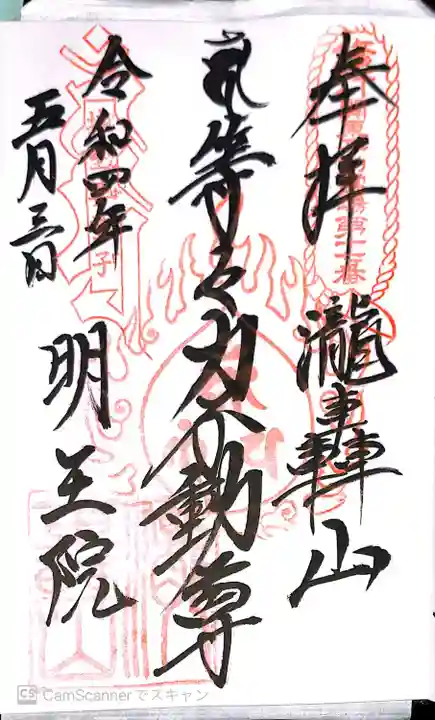 奉拝
瀧轟山
等々力不動尊
令和四年
五月三日
明王院
CS CamScannerでスキャン